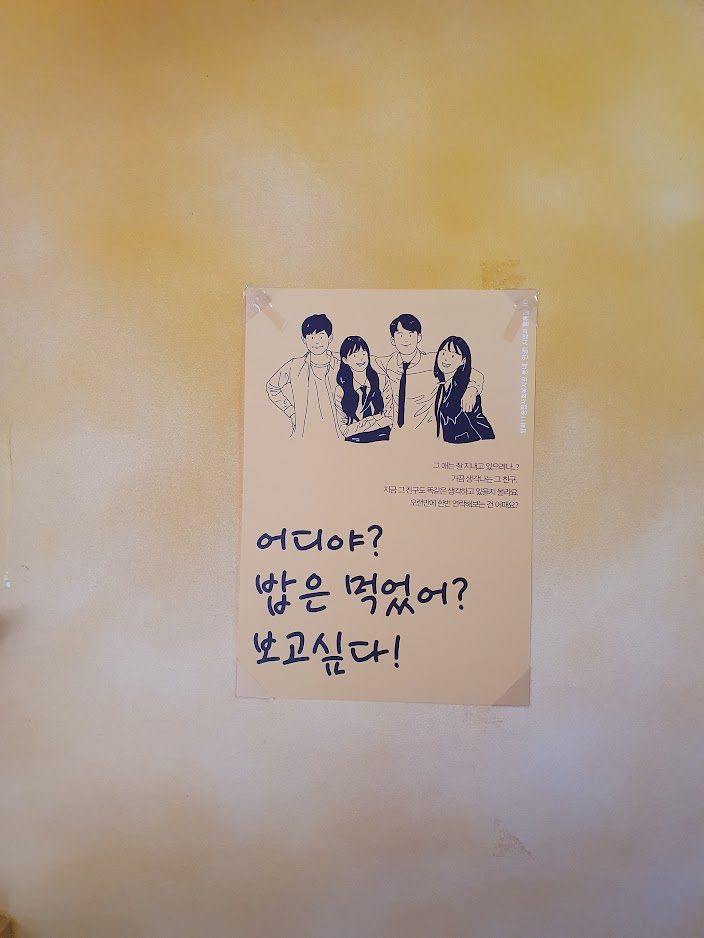 그 애는 잘 지내고 있으려나..?
가끔 생각나는 그 친구.
지금 그 친구도 똑같은 생각하고 있을지 몰라요.
오랜만에 한번 연락해보는 건 어때요?
어디야?
밥은 먹었어?
보고싶다!